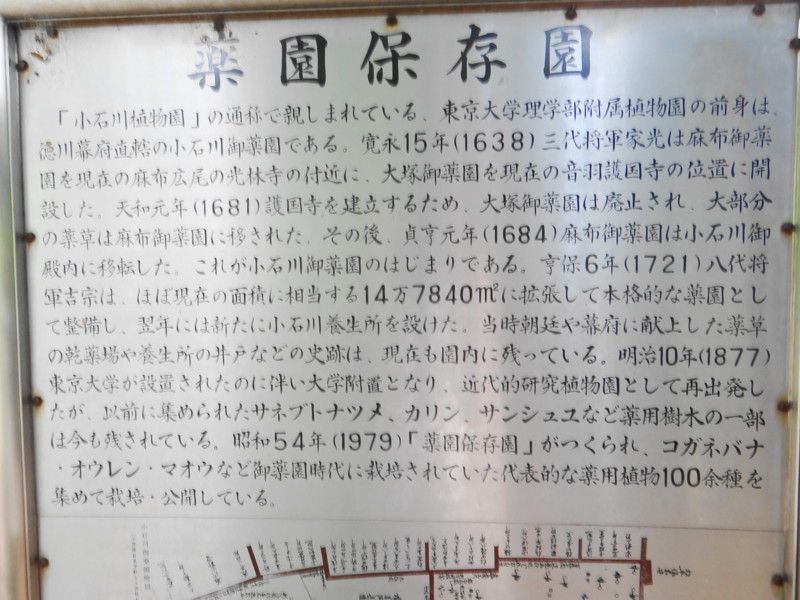 薬園保存園
「小石川植物園」の通称で親しまれている、東京大学理学部附属植物園の前身は、
徳川幕府直轄の小石川御薬園である。寛永15年(1638)三代将軍家光は麻布御薬
園を現在の麻布広尾の光林寺の付近に、大塚御薬園を現在の音羽護国寺の位置に開
設した。天和元年(1681)護国寺を建立するため、大塚御薬園は廃止され、大部分
の薬草は麻布御薬園に移された。その後、貞亨元年(1684)麻布御薬園は小石川御
殿内に移転した。これが小石川御薬園のはじまりである。亨保6年(1721)八代将
軍吉宗は、ほぼ現在の面積に相当する14万7840㎡に拡張して本格的な薬園とし
て整備し、翌年には新たに小石川養生所を設けた。当時朝廷や幕府に献上した薬草
の乾薬場や養生所の井戸などの史跡は、現在も園内に残っている。明治10年(1877)
東京大学が設置されたのに伴い大学附置となり、近代的研究植物園として再出発し
たが、以前に集められたサネブトナツメ、カリン、サンシュユなど薬用樹木の一部
は今も残されている。昭和54年(1979)「薬園保存園」がつくられ、コガネバナ
・オウレン・マオウなど御薬園時代に栽培されていた代表的な薬用植物100余種を
集めて栽培・公開している。